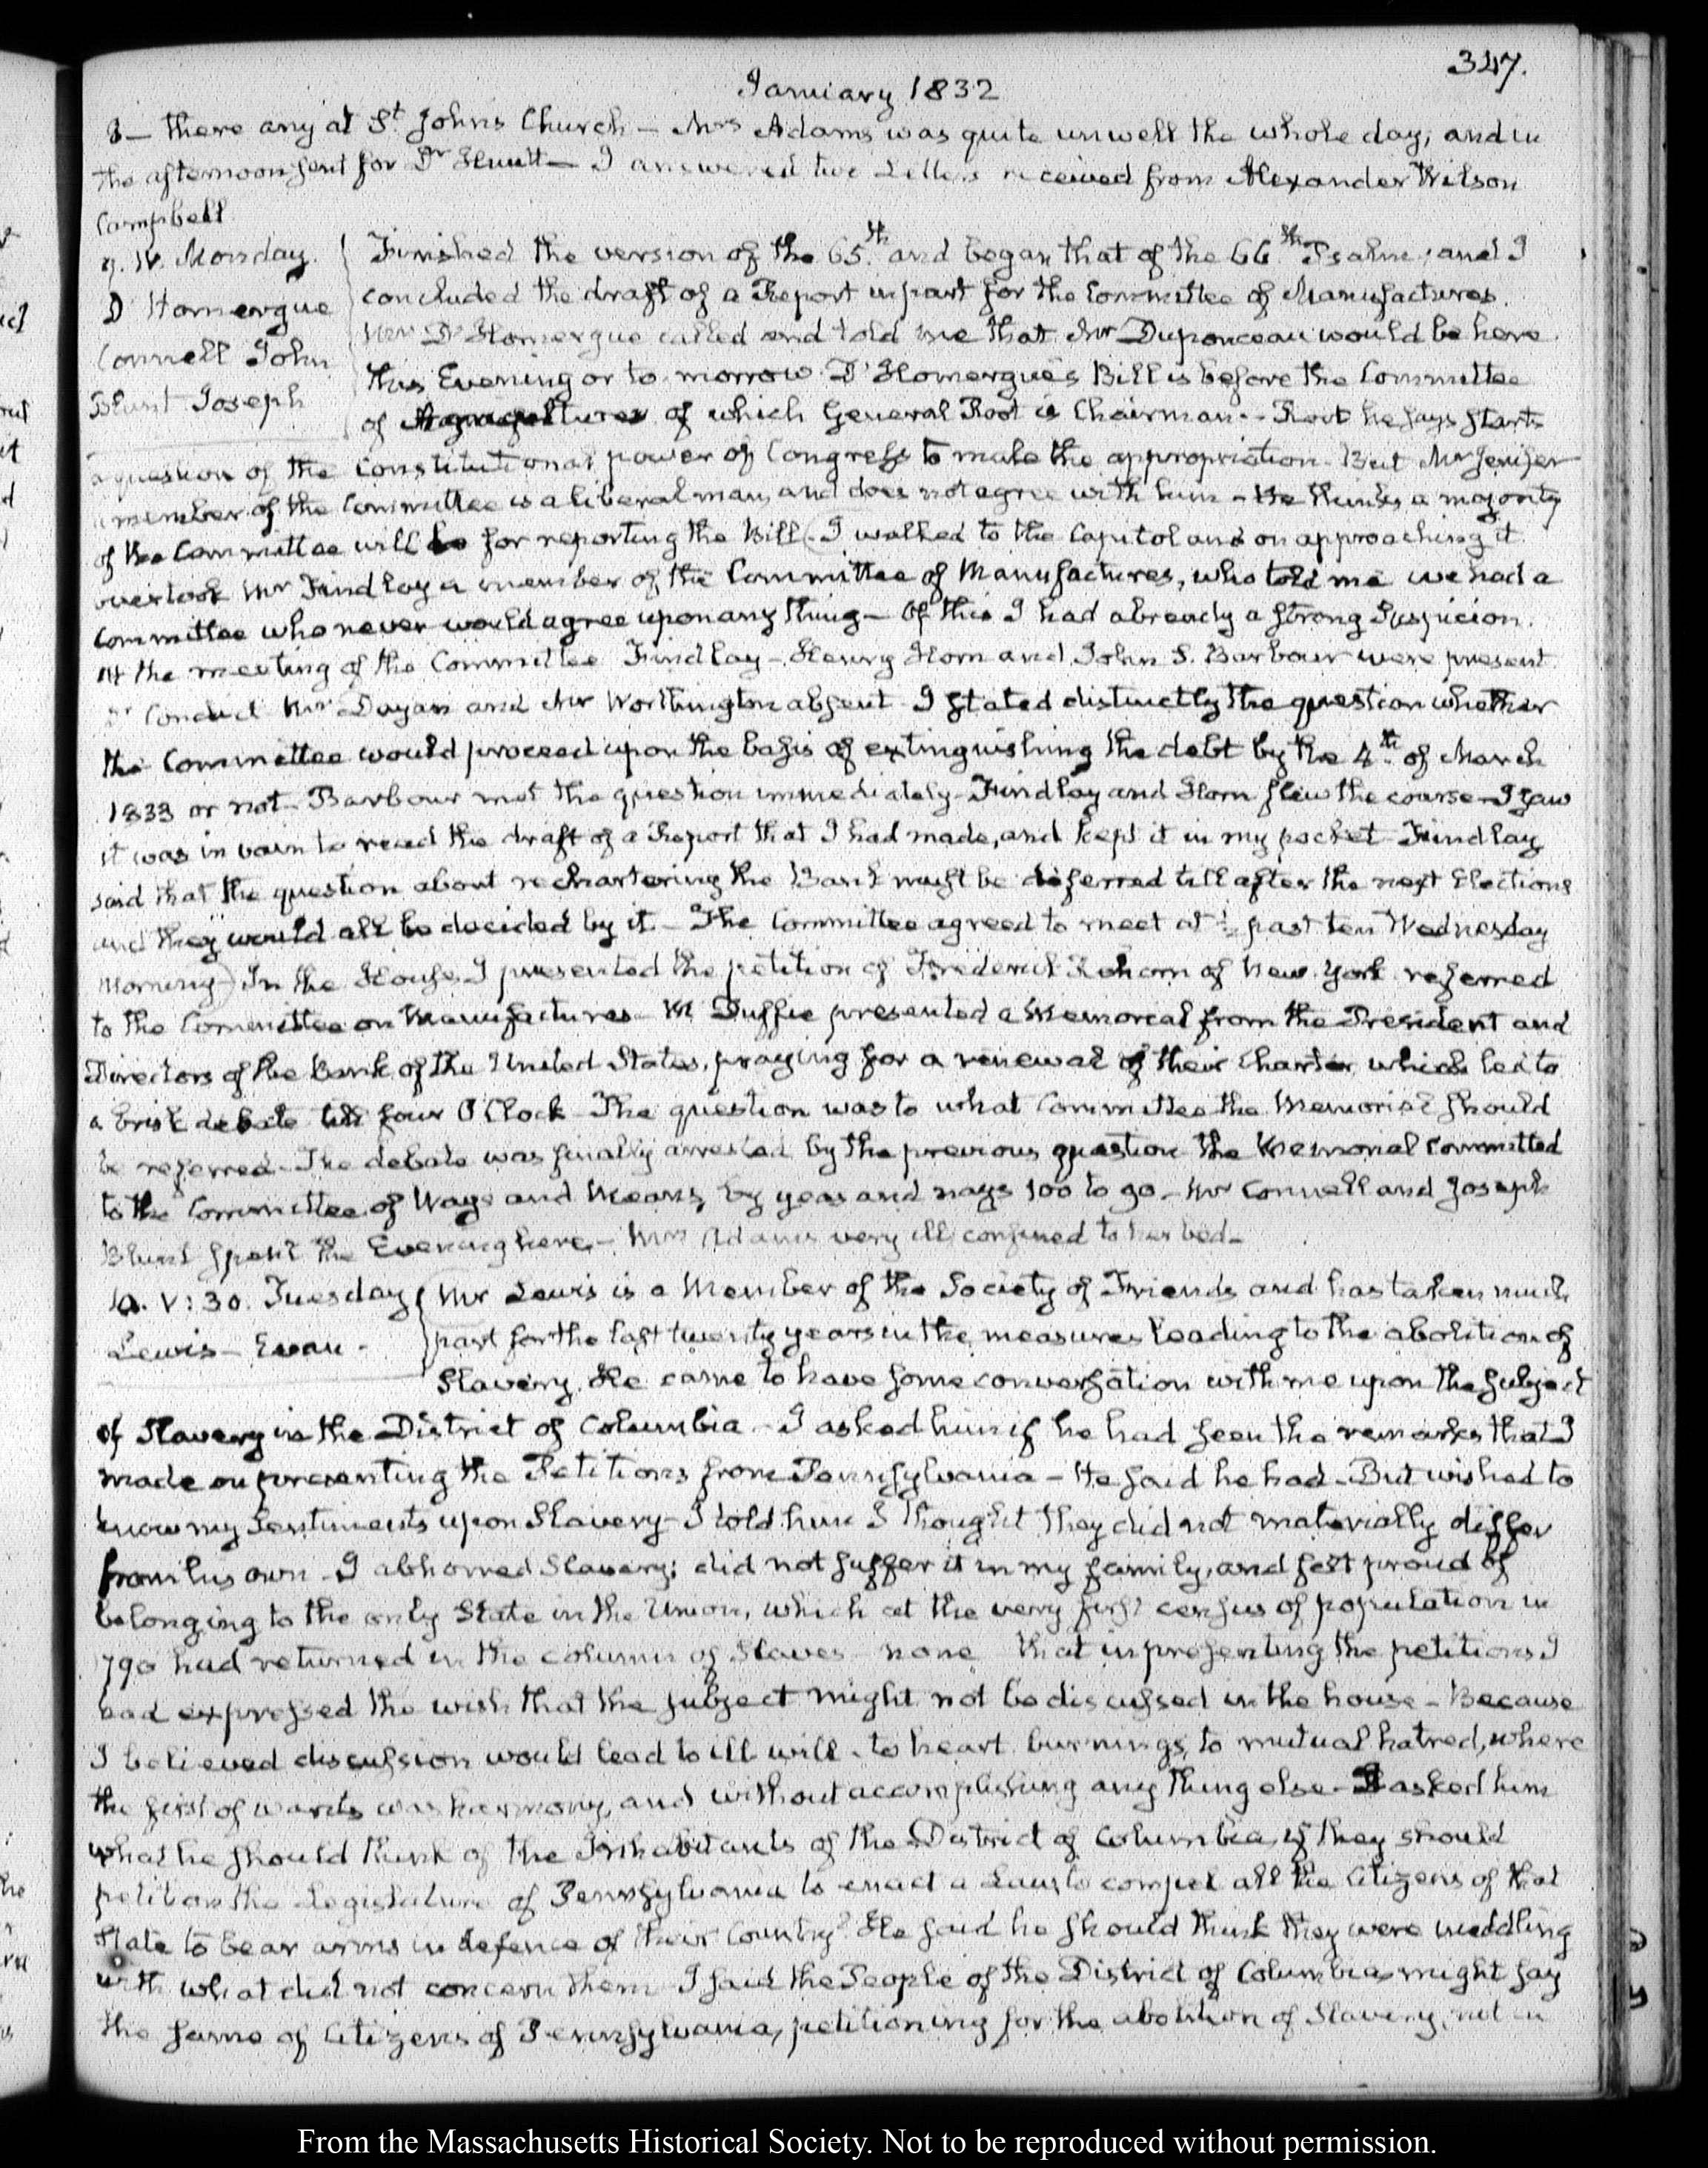 347.
January 1832
8 — there any at St Johns Church — Mrs Adams was quite unwell the whole day, and in
the afternoon sent for Dr Huntt — I answered two Letters received from Alexander Wilson
Campbell
9. IV. Monday.
D'Homergue
Connell John
Blunt Joseph
Finished the version of the 65th and began that of the 66th Psalm; and I
concluded the draft of a Report in part for the Committee of Manufactures.
Mr D'Homergue called and told me that Mr Duponceau would be here
this Evening or to-morrow. D'Homergue's Bill is before the Committee
of Agriculture of which General Root is Chairman — Root he says starts
a question of the Constitutional power of Congress to make the appropriation — But Mr Jenifer
a member of the Committee is a liberal man, and does not agree with him — He thinks a majority
of the Committee will be for reporting the Bill. I walked to the Capitol and on approaching it
overtook Mr Findlay a member of the Committee of Manufactures, who told me we had a
Committee who never would agree upon any thing — Of this I had already a strong Suspicion.
At the meeting of the Committee Findlay — Henry Horn and John S. Barbour were present
Dr Condict Mr Dayan and Mr Worthington absent — I stated distinctly the question whether
the Committee would proceed upon the basis of extinguishing the debt by the 4th of March
1833 or not — Barbour met the question immediately — Findlay and Horn flew the course — I saw
it was in vain to read the draft of a Report that I had made, and kept it in my pocket — Findlay
said that the question about rechartering the Bank must be deferred till after the next Elections
and they would all be decided by it. — The Committee agreed to meet at ½ past ten Wednesday
morning) In the House I presented the petition of Frederick of New-York referred
to the Committee on Manufactures — Mc Duffie presented a Memorial from the President and
Directors of the Bank of the United States, praying for a renewal of their Charter which led to
a brisk debate till four O'Clock — The question was to what Committee the Memorial should
be referred — The debate was finally arrested by the previous question the Memorial Committed
to the Committee of Ways and Means, by yeas and nays 100 to 90 — Mr Connell and Joseph
Blunt spent the Evening here. — Mrs Adams very ill, confined to her bed —
10. V:30. Tuesday
Lewis — Evan —
Mr Lewis is a Member of the Society of Friends and has taken much
part for the last twenty years in the measures leading to the abolition of
Slavery. He came to have some conversation with me upon the subject
of Slavery in the District of Columbia — I asked him if he had seen the remarks that I
made on presenting the Petitions from Pennsylvania — He said he had — But wished to
know my Sentiments upon Slavery — I told him I thought they did not materially differ
from his own — I abhorred Slavery; did not suffer it in my family, and felt proud of
belonging to the only State in the Union, which at the very first census of population in
1790 had returned in the column of Slaves — none — that in presenting the petitions I
had expressed the wish that the subject might not be discussed in the house — Because
I believed discussion would lead to ill will — to heart burnings, to mutual hatred, where
the first of wants was harmony, and without accomplishing any thing else — I asked him
what he should think of the Inhabitants of the District of Columbia, if they should
petition the Legislature of Pennsylvania to enact a Law to compel all the Citizens of that
State to bear arms in defence of their Country? He said he should think they were meddling
with what did not concern them — I said the People of the District of Columbia might say
the same of Citizens of Pennsylvania, petitioning for the abolition of Slavery, not in
From the Massachusetts Historical Society. Not to be reproduced without permission.